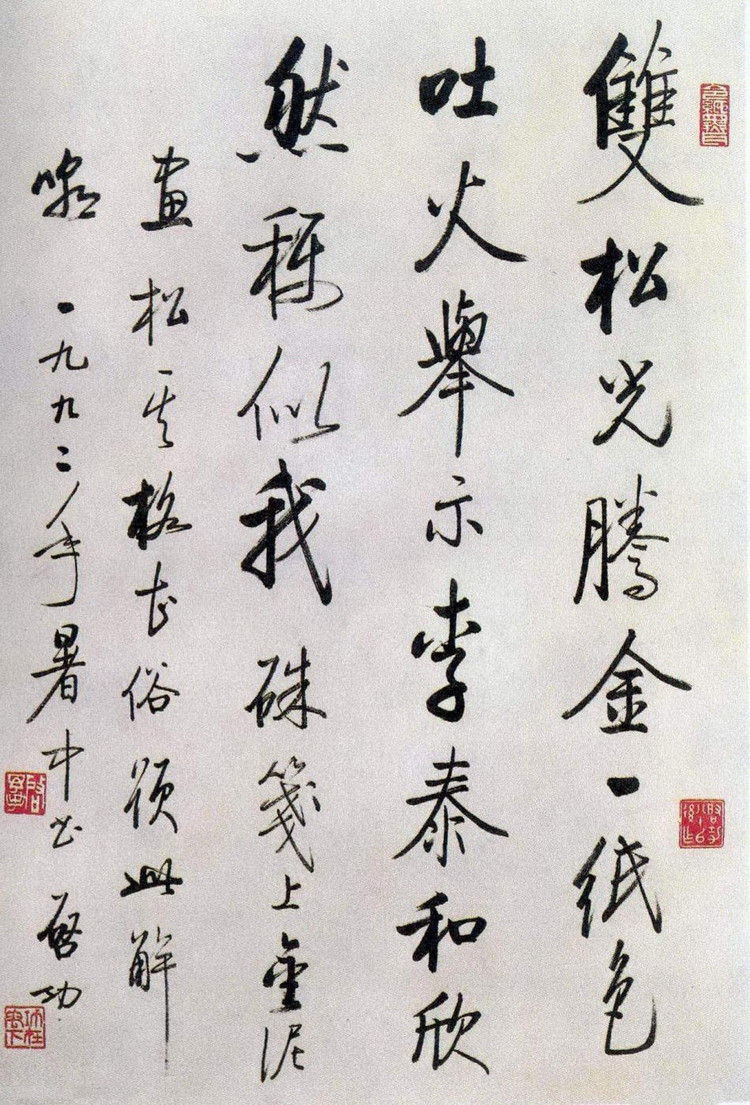 雙松光騰金一紙色
吐火舉示李泰和欣
然稱似我硃箋上金泥
畫松其格甚俗須此解
嘲 一九九二年暑中书 啓功